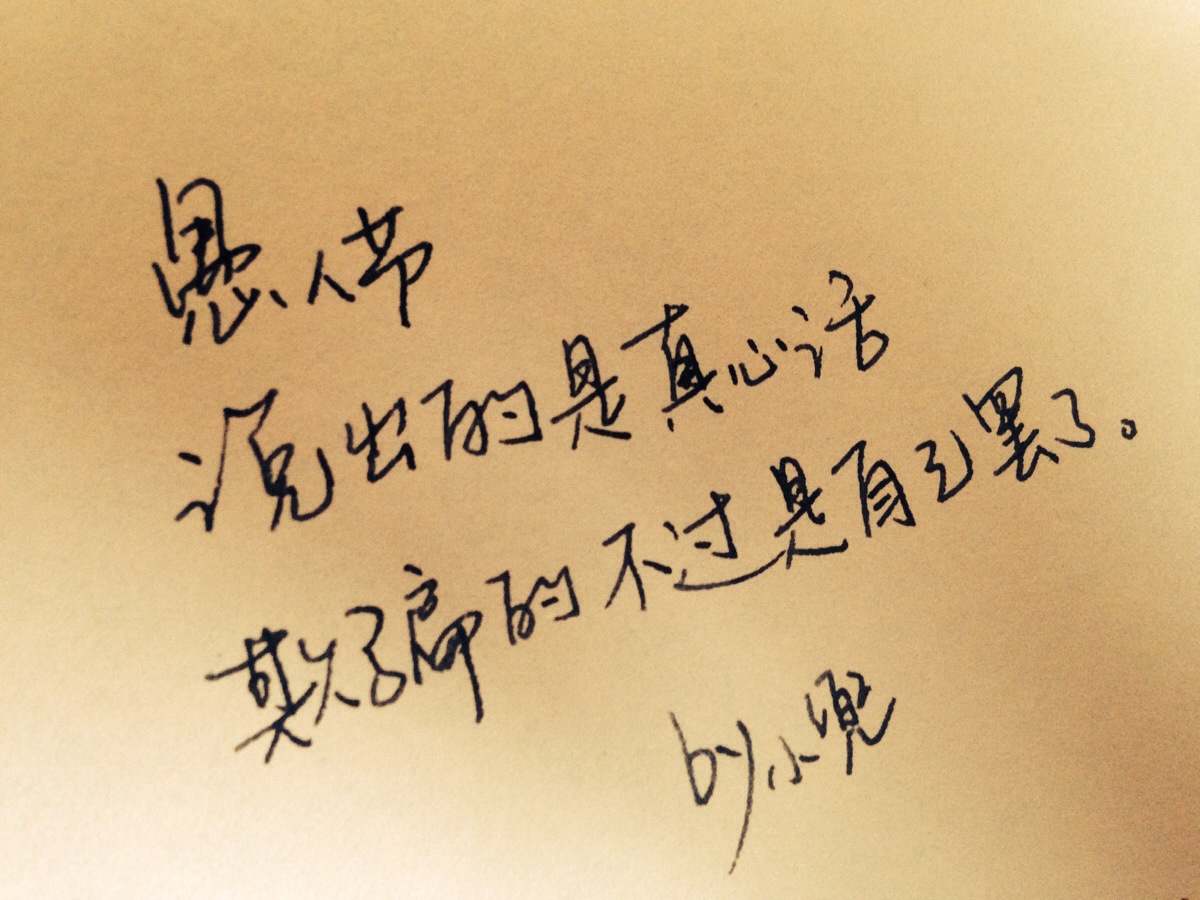 愚人节
说出的是真心话
欺骗的不过是自己罢了。
by 小兜